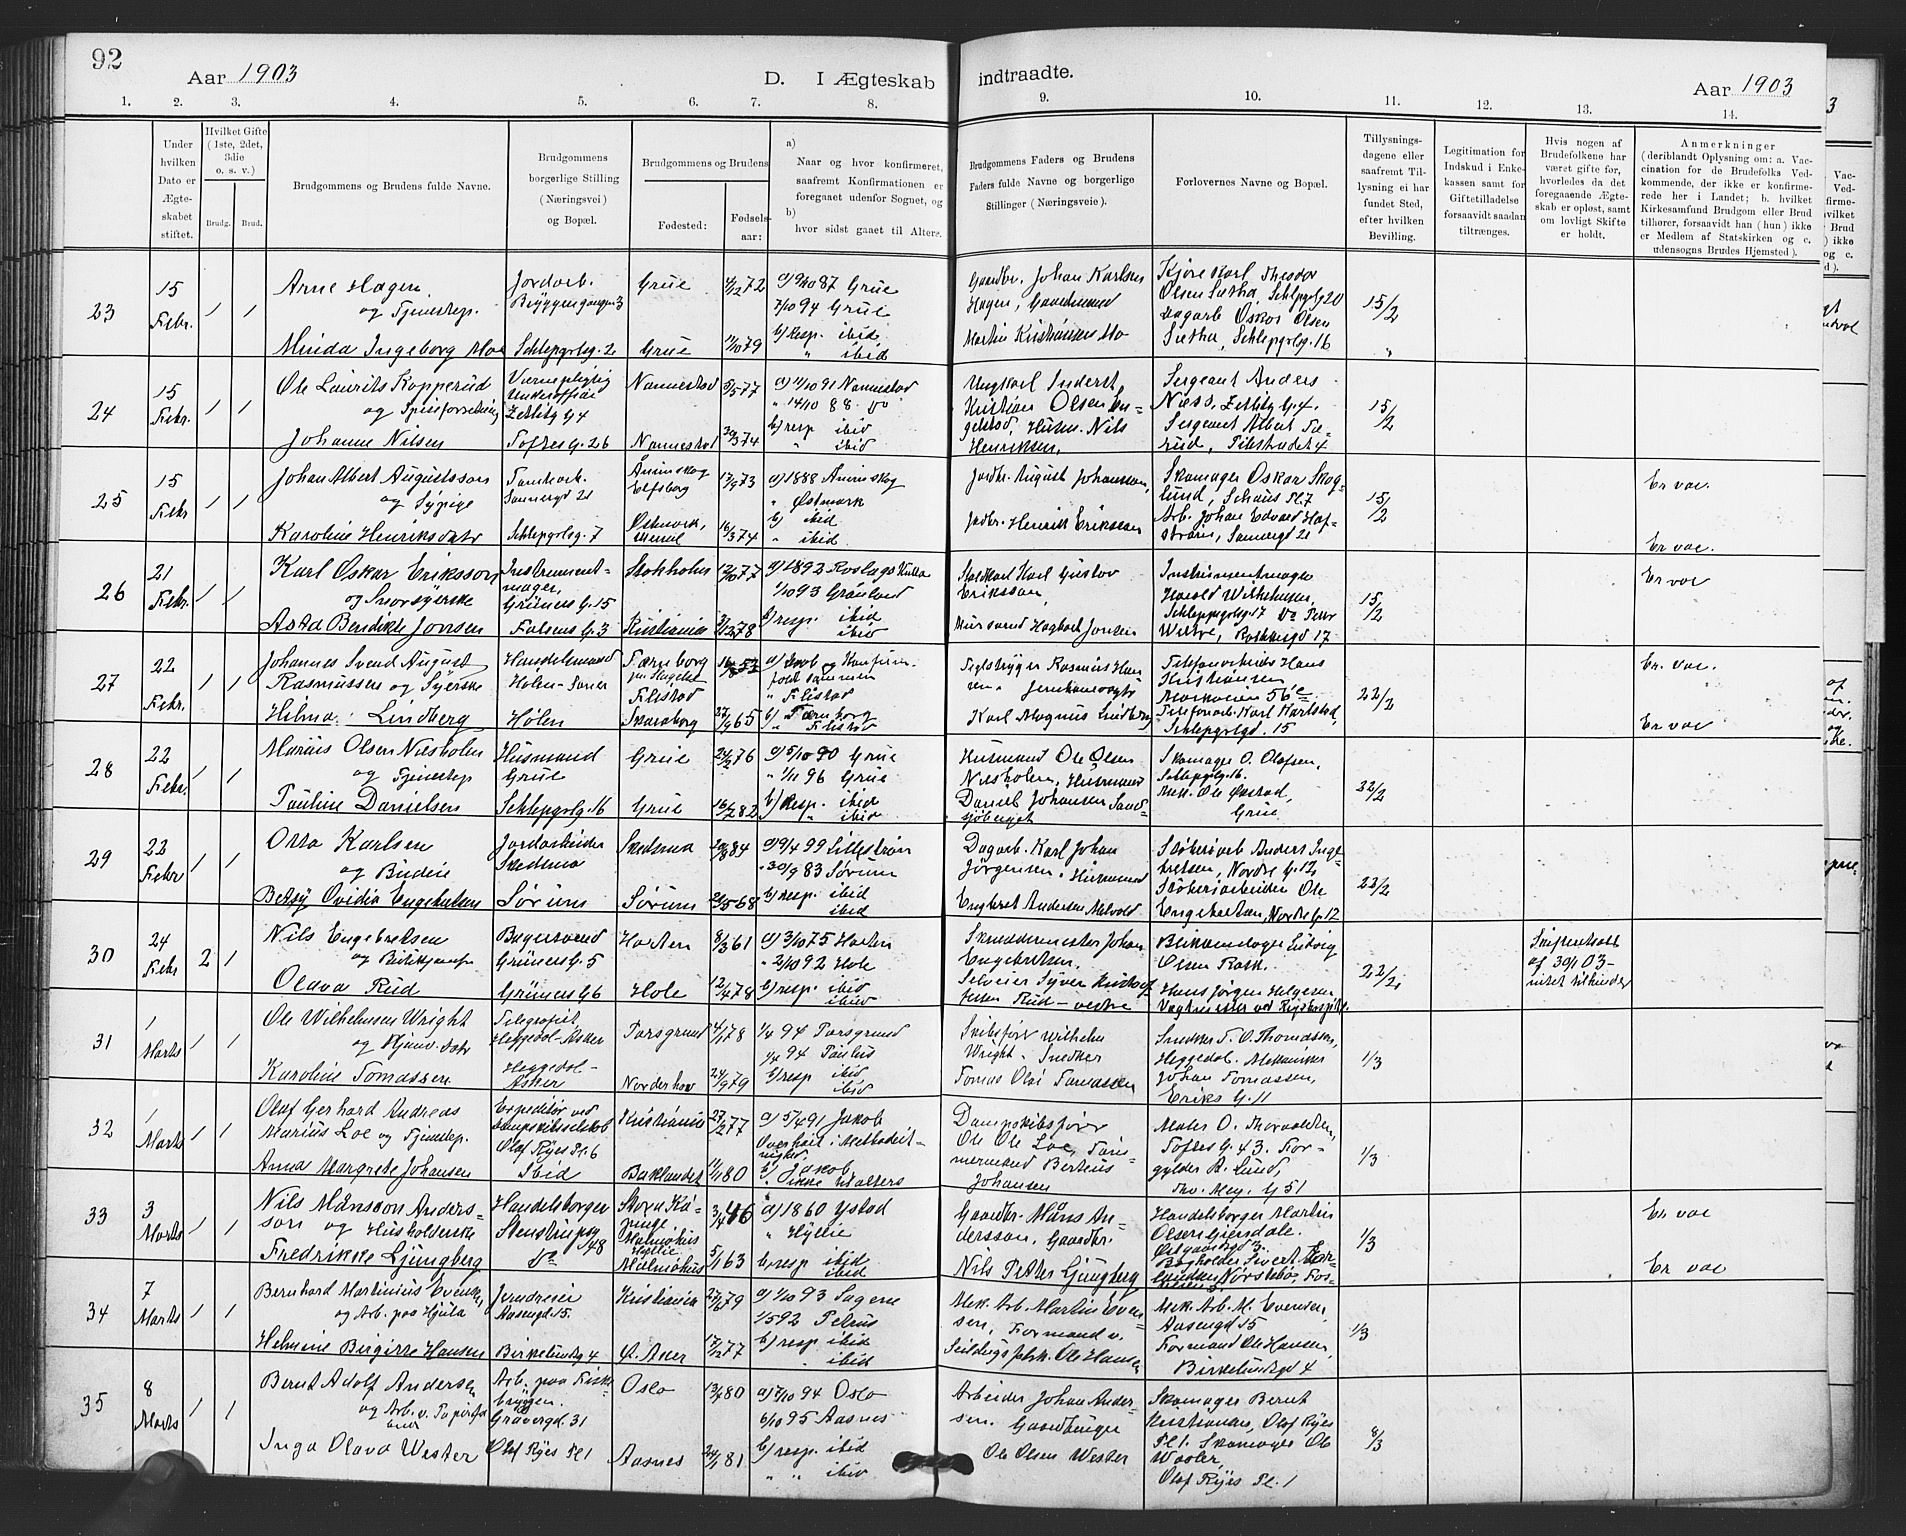 92
Aar 1903
D. I Ægteskab indtraadte.
Aar 1903
1. 2. 3. 4. 5. 6. 7. 8. 9. 10. 11. 12. 13. 14.
Under hvilken Dato er Ægteskabet stiftet.
Hvilket Gifte (1ste, 2det, 3die o. s. v.)
Brudg. Brud.
Brudgommens og Brudens fulde Navne.
Brudgommens borgerlige Stilling (Næringsvei) og Bopæl.
Brudgommens og Brudens
Fødested:
Fødselsaar:
a) Naar og hvor konfirmeret, saafremt Konfirmationen er foregaaet udenfor Sognet, og
b) hvor sidst gaaet til Alters.
Brudgommens Faders og Brudens Faders fulde Navne og borgerlige Stillinger (Næringsveie).
Forlovernes Navne og Bopæl.
Tillysningsdagene eller saafremt Tillysning ei har fundet Sted, efter hvilken Bevilling.
Legitimation for Indskud i Enkekassen samt for Giftetilladelse forsaavidt saadan tiltrænges.
Hvis nogen af Brudefolkene har været gifte før, hvorledes da det foregaaende Ægteskab er opløst, samt om lovligt Skifte er holdt.
Anmerkninger (deriblandt Oplysning om: a. Vaccination for de Brudefolks Vedkommende, der ikke er konfirmerede her i Landet; b. hvilket Kirkesamfund Brudgom eller Brud tilhører, forsaavidt han (hun) ikke er Medlem af Statskirken og c. udensogns Brudes Hjemsted).
23
15 Febr.
1 1
Arne Hagen
og Tjenestep.
Minda Ingeborg Moe
Jordarb.
Schleppgrlsg. 2
Grue
Grue
4/12 72
11/10 79
a) 9/10 87 Grue
7/10 94 Grue
b) Resp. ibid
" ibid
Gaardbr. Johan Karlsen
Hagen, Gaardmand
Martin Kristiansen Mo
Kjørekarl Theodor
Olsen Sætha, Schlepgrlsg 20
Dagarb Oskar Olsen
Sætha, Schlepgrlsg. 16
15/2
24
15 Febr.
1 1
Ole Laurits Kopperud
og Spiseforretning
Johanne Nilsen
Værnepligtig
Underofficer
Zetlitz G 4
Toftes G. 26
Nannestad
Nannestad
5/5 77
30/3 74
a) 11/10 91 Nannestad
" 14/10 88 do
b) resp ibid
" ibid
Ungkarl Inderst
Kristian Olsen
Husm. Nils
Henriksen,
Sergeant Anders
Næss, Zetlitz G. 4.
Sergeant Albert
Tilstrudet 4
15/2
25
15 Febr
1 1
Johan Albert Augustsson
og Sypige
Karoline Henriksdatr
Tomtearb.
Sannergd 21
Schlepgrlsg. 7
Ånimskog
Elfsborg
Østmark,
13/9 73
16/3 74
a) 1888 Animskog
" Østmark
b) ibid
" ibid.
Jordbr. August Johansson,
Jordbr. Henrik Eriksson
Skomager Oskar Skoglund, Schous Pl. 7
Arb. Johan Edvard Hafström, Sannergd 21
15/2
Er vac.
Er vac.
26
21 Febr.
1 1
Karl Oskar Eriksson
og Snorsyerske
Asta Bendikte Jonsen
Instrumentmager,
Grüners G. 15
Falsens G. 3
Stokholm
Kristiania
12/10 77
3/12 78
a) 1892 Roslags Kulla
1/10 93 Grønland
b) resp. ibid
ibid
Karl Gustav
Eriksson,
Mursvend Hagbart Jonsen
Instrumentmager
Harald Wilhelmsen,
Schleppgrlsg. 17
15/2
Er vac
27
22 Febr.
1 1
Johannes Svend August
Rasmussen og Syerske
Hilma Lindberg
Handelsmand
Hølen - Soner
Hølen
Færneborg
Filistad
Skaraborg
27/9 65
a)
" Filistad
b) Færneborg
" Filistad
Teglstryger Rasmus Hansen
Karl Magnus Lindberg
Telefonarbeider Hans
Kristiansen
Markveien 56 c
Telefonarb. Karl Karlstad,
Schlepgrlsgd. 15
22/2
Er. vac.
Er vac
28
22 Febr.
1 1
Marius Olsen Næsholen
og Tjenestep
Pauline Danielsen
Husmand
Grue
Schlepgrlsg. 16
Grue
Grue
24/2 76
16/2 82
a) 5/10 90 Grue
" 1/11 96 Grue
b) Resp. ibid
" ibid
Husmand Ole Olsen
Næsholen, Husmand
Daniel Johansen Sandsjøberget
Skomager O. Olafsen,
Schlepgrlsg. 16.
Mek. Ole Østad,
Grue
22/2
29
22 Febr
1 1
Otto Karlsen
og Budeie
Betsy Ovidia Engebretsen
Jordarbeider
Skedsmo
Sørum
Skedsmo
Sørum
20/8 84
23/5 68
a) 9/4 99 Lillestrøm
" 30/9 83 Sørum
b) resp. ibid
ibid
Dagarb. Karl Johan
Jørgensen, Husmand
Engbret Andersen Melvold
Støberiarb. Anders Ingebretsen, Nordre G. 12
Støberiarbeider Ole
Engebretsen, Nordre G. 12
22/2
30
24 Febr
2 1
Nils Engebretsen
og Butikjomfr.
Olava Rud
Bagersvend
Grüners G. 5
Grüners G 6
Horten
Hole
8/3 61
12/4 78
a) 3/10 75 Horten
" 2/10 92 Hole
b) resp. ibid
ibid
Skræddermester Johan
Engebretsen.
Selveier Syver Kristoffersen Rud - vestre
Blikkenslager Ludvig
Olsen Rask.
Hans Jørgen Helgesen
Vagtmester ved Rigshospitl.
22/2
Skifteretsatt
af 30/1 03 -
intet til hinder
31
1 Marts
1 1
Ole Wilhelmsen Wright
og Hjemv. Datr
Karoline Tomassen
Telegrafist
Heggedal - Asker
Heggedal - Asker
Porsgrund
Norderhov
4/1 78
24/9 79
1/4 94 Porsgrund
1/4 94 Paulus
b) resp ibid
ibid
Skibsfør Wilhelm
Wright. Snedker
Tomas Olai Tomassen
Snedker T. O. Thomassen,
Heggedal. Mekaniker
Johan Tomassen,
Eriks G. 11
1/3
32
1 Marts
1 1
Olaf Gerhard Andreas
Marius Loe og Tjenestep.
Anna Margrete Johansen
Expeditør ved
Dampskibsselskab
Olaf Ryes Pl. 6
Ibid
Kristiania
Baklandet
27/2 77
11/1 80
a) 5/4 91 Jakob
Overhört i Methodistmighed
b) Jakob
" ikke tilalters
Dampskibsfører
Ole Ole Loe, Tømmermand Berteus
Johansen
Maler O. Thorvaldsen,
Toftes G. 43. Forgylder A. Lund,
Thv. Mey. G 51
1/3
33
3 Marts
1 1
Nils Månsson Andersson og Husholderske
Fredrikke Ljungberg
Handelsborger
Stenstrupg 48
do
Stora Köpinge
Malmøhus
Hyllie
Malmøhus
3/4 46
5/1 63
a) 1860 Ystad
" Hyllie
b) resp ibid
ibid
Gaardbr. Måns Andersson, Gaardbr.
Nils Petter Ljungberg
Handelsborger Martin
Olsen Gjersdale.
Østgaardsgd 3.
Bogholder Sivert
1/3
Er vac
Er vac
34
7 Marts
1 1
Bernhard Martinius Evensen
og Arb. paa Hjula
Helmine Birgitte Hansen
Jerndreier
Aasengd 15.
Birkelundg 4
Kristiania
V. Aker
27/6 79
17/12 77
a) 1/10 93 Sagene
1/5 92 Petrus
b) resp ibid
" ibid
Mek. Arb. Martin Evensen, Formand v.
Seildugsfabr. Ole Hansen
Mek. Arb. M. Evensen,
Aasengd 15
Formand Ole Hansen,
Birkelundgd 4
1/3
35
8 Marts
1 1
Bernt Adolf Andersen
og Arb. v. Papirfabriker
Inga Olava Wester
Arb. paa Fiskebryggen.
Gravergd. 31
Olaf Ryes Pl 1
Oslo
Aasnes
13/4 80
24/1 81
a) 7/10 94 Oslo
6/10 95 Aasnes
b) resp. ibid
" " ibid
Arbeider Johan Andersen. Gaardbruger
Ole Olsen Wester
Skomager Bernt
Kristiansen, Olaf Ryes
Pl. 1. Skomager Ole
Wester,
Olaf Ryes Pl. 1
8/3